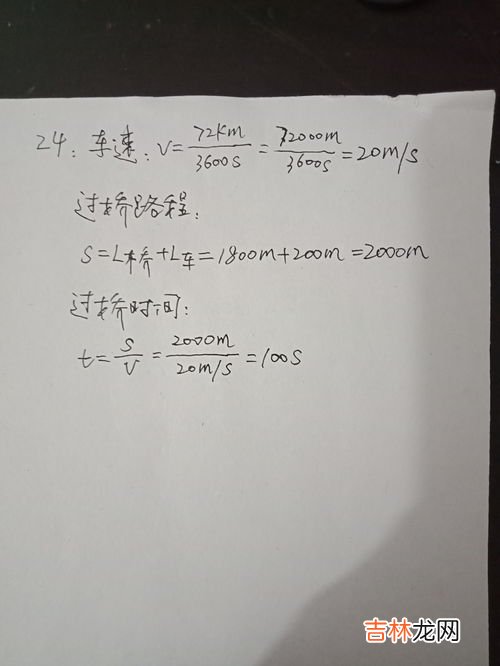 24: 车速: V=72Km/3600S=72000m/3600S=20m/S
过桥路程:
S=L桥+L车=1800m+200m=2000m
过桥时间:
t=S/V=2000m/20m/S=100S
吉林龙网